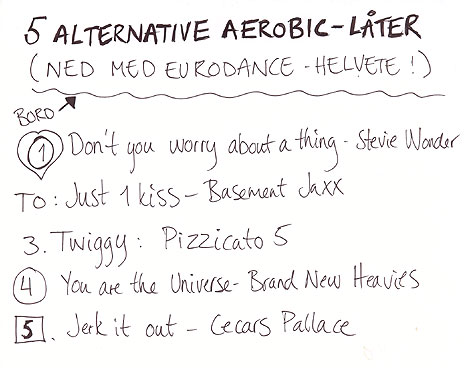 5 ALTERNATIVE AEROBIC-LÅTER
(NED MED EURODANCE-HELVETE!)
BORD
1 Don't you worry about a thing - Stevie Wonder
TO: Just 1 kiss - Basement Jaxx
3. Twiggy: Pizzicato 5
4 You are the Universe - Brand New Heavies
5. Jerk it out - Cecars Pallace